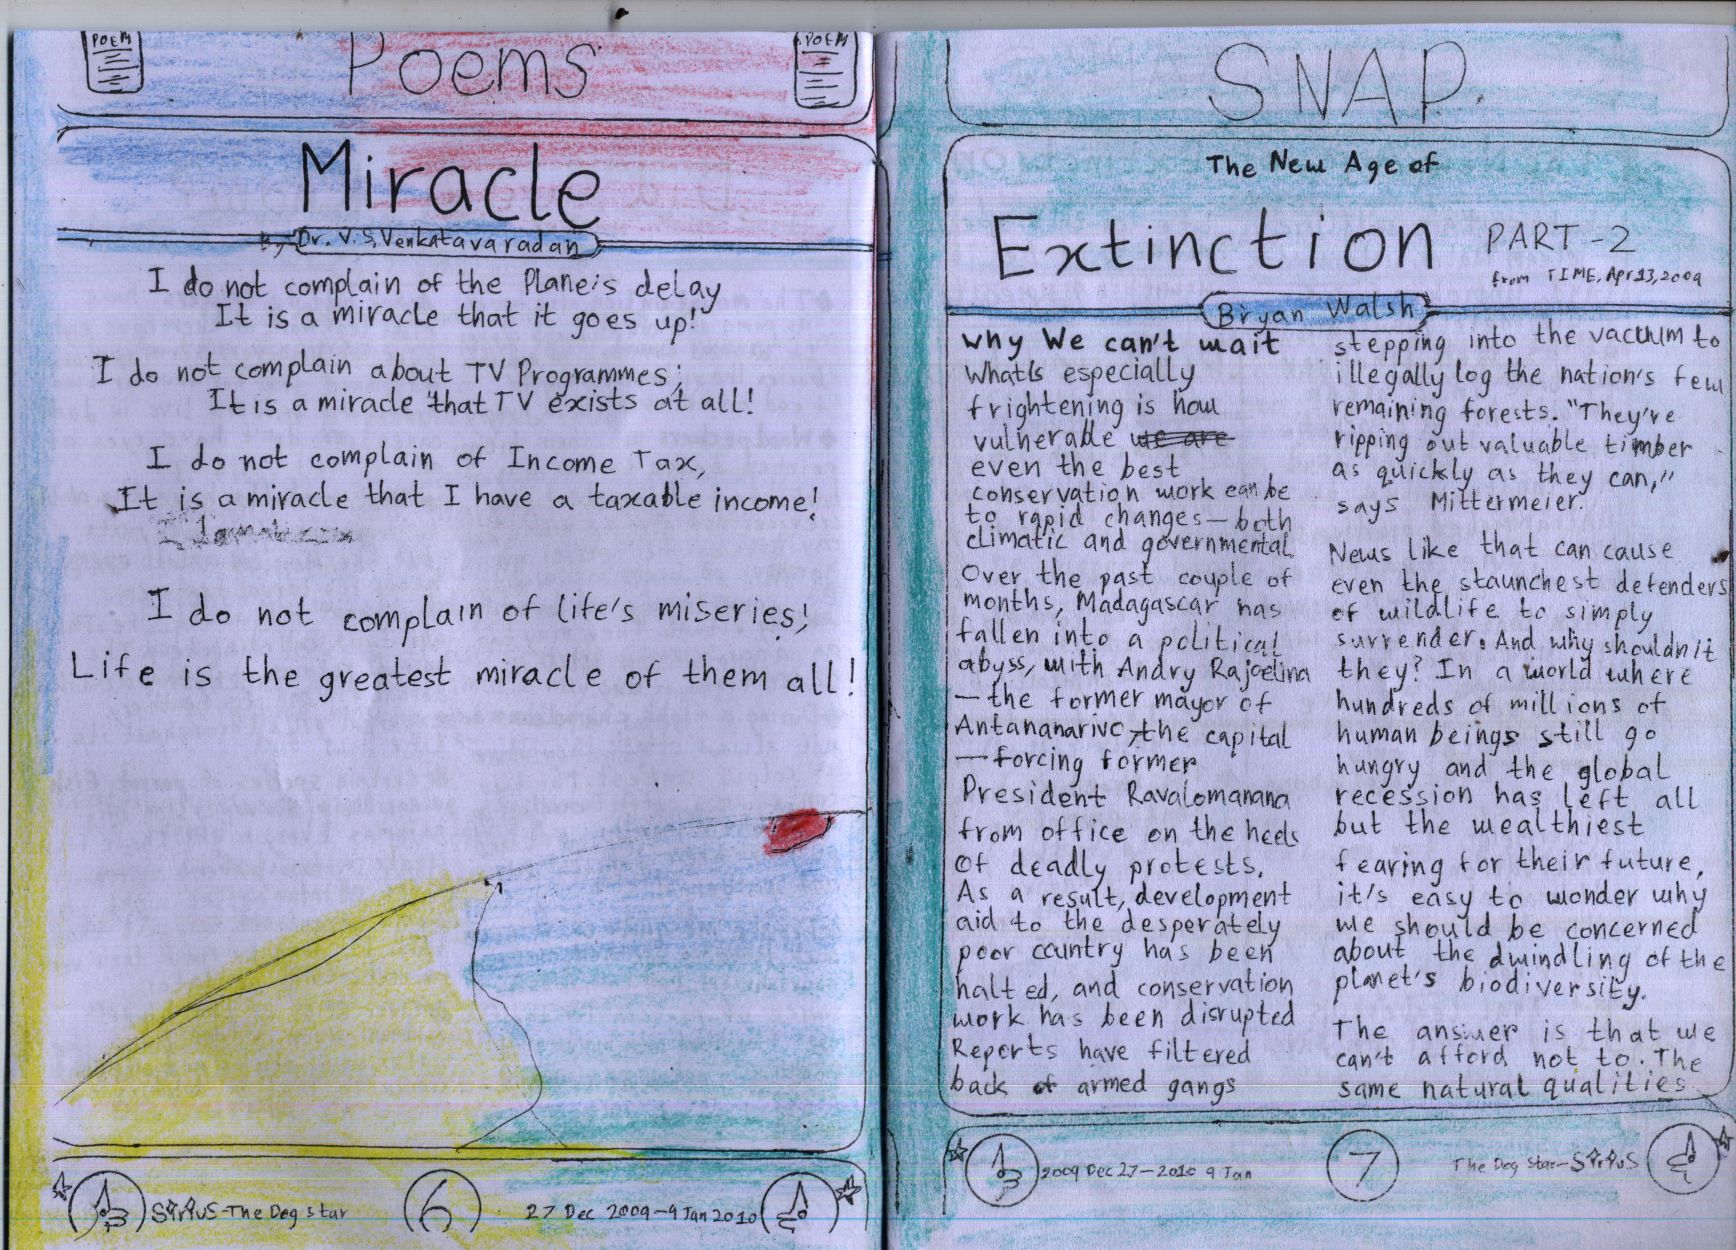 POEM
Poems
POEM
Miracle
By, Dr. V.S. Venkatavaradan
I do not complain of the Plane's delay
It is a miracle that it goes up!
I do not complain about TV Programmes;
It is a miracle that TV exists at all!
I do not complain of Income Tax,
It is a miracle that I have a taxable income!
I do not complain of life's miseries!
Life is the greatest miracle of them all!
Sirius-The Dog star
6
27 Dec 2009-9 Jan 2010
SNAP
The New Age of
Extinction PART-2
from TIME, Apr 13, 2009
Bryan Walsh
why We can't wait
What's especially
frightening is how
vulnerable we are
even the best
conservation work can be
to rapid changes—both
climatic and governmental.
Over the past couple of
months, Madagascar has
fallen into a political
abyss, with Andry Rajoelina
—the former mayor of
Antananarivo, the capital
—forcing former
President Ravalomanana
from office on the heels
of deadly protests.
As a result, development
aid to the desperately
poor country has been
halted, and conservation
work has been disrupted
Reports have filtered
back of armed gangs
stepping into the vacuum to
illegally log the nation's few
remaining forests. "They're
ripping out valuable timber
as quickly as they can,"
says Mittermeier.
News like that can cause
even the staunchest defenders
of wildlife to simply
surrender. And why shouldn't
they? In a world where
hundreds of millions of
human beings still go
hungry and the global
recession has left all
but the wealthiest
fearing for their future,
it's easy to wonder why
we should be concerned
about the dwindling of the
planet's biodiversity.
The answer is that we
can't afford not to. The
same natural qualities
2009 Dec 27-2010 9 Jan
7
The Dog Star-Sirius